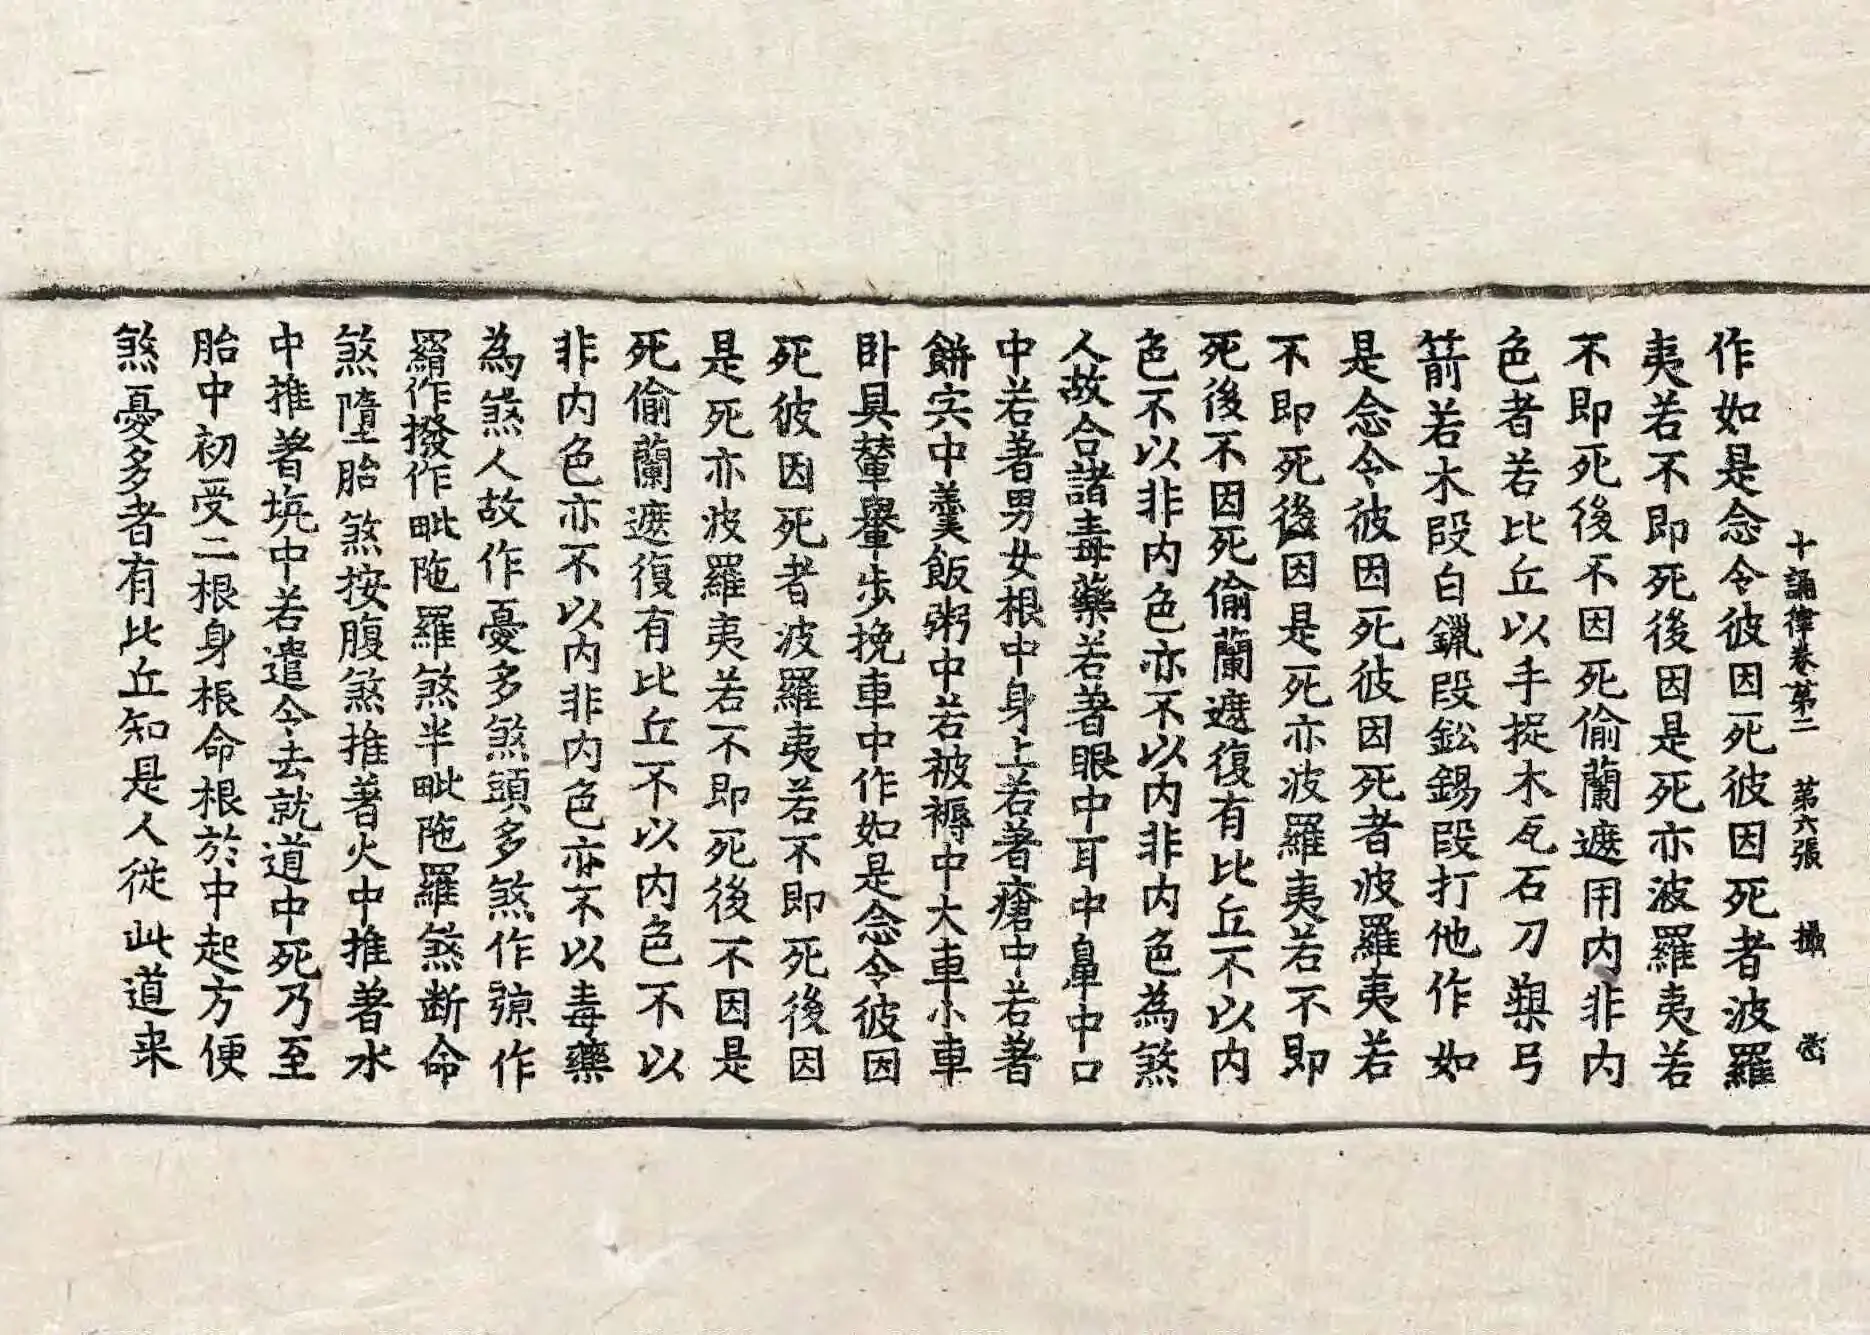 十誦律卷第二　第六張　攝
作如是念令彼因死彼因死者波羅
夷若不即死後因是死亦波羅夷若
不即死後不因死偷蘭遮用内非内
色者若比丘以手捉木瓦石刀槊弓
箭若木段白鑞段鈆錫段打他作如
是念令彼因死彼因死者波羅夷若
不即死後因是死亦波羅夷若不即
死後不因死偷蘭遮復有比丘不以内
色不以非内色亦不以内非内色為煞
人故合諸毒藥若著眼中耳中鼻中口
中若著男女根中身上若著瘡中若著
餅宍中羹飯粥中若被褥中大車小車
卧具輦轝步挽車中作如是念令彼因
死彼因死者波羅夷若不即死後因
是死亦波羅夷若不即死後不因是
死偷蘭遮復有比丘不以内色不以
非内色亦不以内非内色亦不以毒藥
為煞人故作憂多煞頭多煞作弶作
羂作撥作毗陁羅煞半毗陁羅煞断命
煞墮胎煞按腹煞推著火中推著水
中推著坑中若遣令去就道中死乃至
胎中初受二根身根命根於中起方便
煞憂多者有比丘知是人從此道来